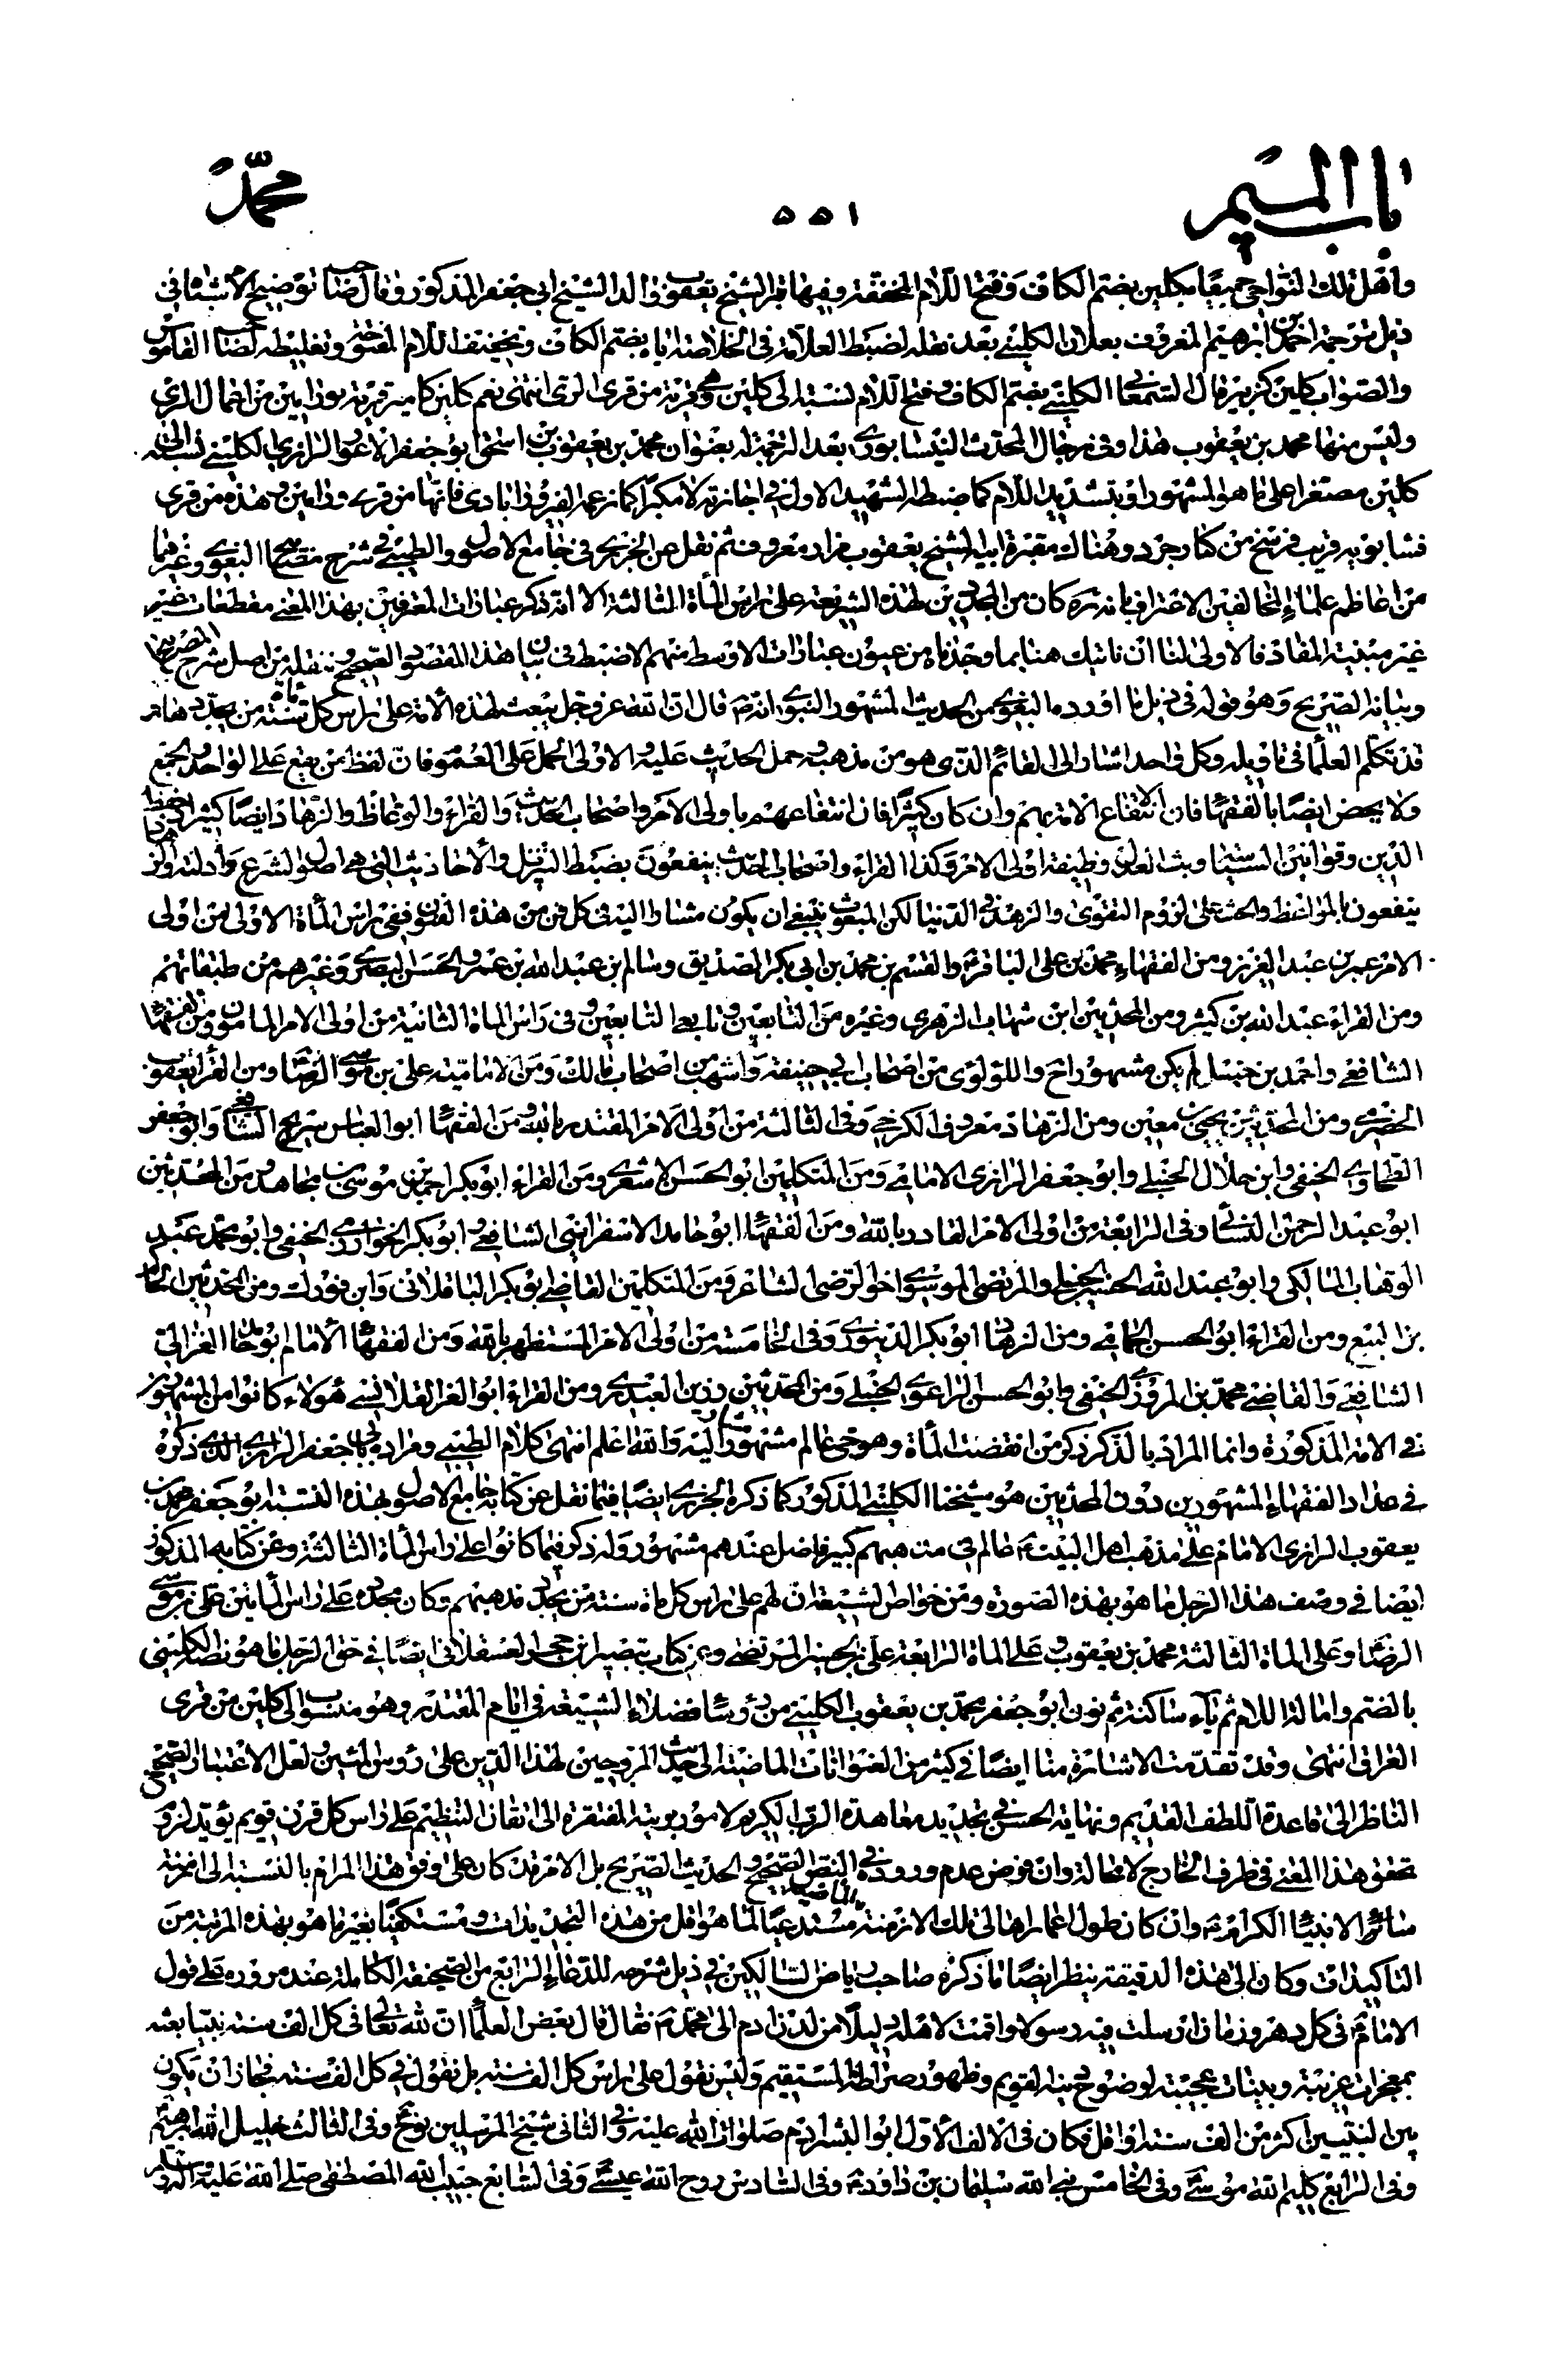 باب الميم
٥٥١
محمد
واهل تلك النواحى جميعا بكلين بضم الكاف وفتح اللام المخففة وفيها قبر الشيخ يعقوب والد الشيخ ابى جعفر المذكور وقال صاحب توضيح الاشتباه فى
ذيل ترجمة احمد بن ابرهيم المعروف بعلان الكلينى بعد نقله لضبط العلامة فى الخلاصة اياه بضم الكاف وتخفيف اللام المفتوحة وتغليطه لصاحب القاموس
والصواب كلين كزبير قال السمعانى الكلينى بضم الكاف وفتح اللام نسبة الى كلين وهى قرية من قرى الرى انتهى نعم كلين كامير قرية بورامين من اعمال الرى
وليس منها محمد بن يعقوب هذا وفى رجال المحدث النيسابورى بعد الترجمة له بعنوان محمد بن يعقوب بن اسحق ابو جعفر الاعور الرازى الكلينى نسب الى
كلين مصغرا على ما هو المشهور او بتشديد اللام كما ضبطه الشهيد الاول فى اجازته لا مكبرا كما زعمه الفيروزابادى فانها من قرى ورامين وهذه من قرى
فشابويه قريب فرسخ من كنارجرد وهناك مقبرة ابيه الشيخ يعقوب مزار معروف ثم نقل عن الجزرى فى جامع الاصول والطيبى فى شرح مصابيح البغوى وغيرهما
من اعاظم علماء المخالفين الاعتراف بانه ره كان من المجددين لهذه الشريعة على راس المأة الثالثة الا انه ذكر عبارات المعترفين بهذا المعنى مقطعات
غير مبنية المفاد فالاولى لنا ان ناتيك هنا بما وجدناه من عيون عبارات الاوسط منهم الاضبط فى بيان هذا المقصود الصحيح وننقله من اصل شرح
وبيانه الصريح وهو قوله فى ذيل ما اورده البغوى من الحديث المشهور النبوى انه ص قال ان الله عز وجل يبعث لهذه الامة على راس كل مأة سنة من يجدد
قد تكلم العلماء فى تاويله وكل واحد اشار الى القائم الذى هو من مذهبه وحمل الحديث عليه والاولى الحمل على العموم فان لفظ من يقع على الواحد والجمع
ولا يخص ايضا بالفقهاء فان انتفاع الامة بهم وان كان كثيرا فان انتفاعهم باولى الامر واصحاب الحديث والقراء والوعاظ والزهاد ايضا كثير
الدين وقوانين السياسة وبث العدل وظيفة اولى الامر وكذا القراء واصحاب الحديث ينفعون بضبط التنزيل والاحاديث التى هى اصول الشرع وادلته
ينفعون بالمواعظ والحث على لزوم التقوى والزهد فى الدنيا لكن المبعوث ينبغى ان يكون مشارا اليه فى كل فن من هذه الفنون ففى راس المأة الاولى من اولى
الامر عمر بن عبد العزيز ومن الفقهاء محمد بن على الباقر والقسم بن محمد بن ابى بكر الصديق وسالم ابن عبد الله بن عمر والحسن البصرى وغيرهم من طبقاتهم
ومن القراء عبد الله بن كثير ومن المحدثين ابن شهاب الزهرى وغيره من التابعين وتابعى التابعين وفى راس المأة الثانية من اولى الامر المامون ومن الفقهاء
الشافعى واحمد بن حنبل لم يكن مشهورا ح واللولوى من اصحاب ابى حنيفة واشهب من اصحاب مالك ومن الامامية على بن موسى الرضا ومن القراء يعقوب
الحضرمى ومن المحدثين يحيى بن معين ومن الزهاد معروف الكرخى وفى الثالثة من اولى الامر المقتدر بالله ومن الفقهاء ابو العباس سريج الشافعى وابو جعفر
الطحاوى الحنفى وابن خلال الحنبلى وابو جعفر الرازى الامامى ومن المتكلمين ابو الحسن الاشعرى ومن القراء ابو بكر احمد بن موسى بن مجاهد ومن المحدثين
ابو عبد الرحمن النسائى وفى الرابعة من اولى الامر القادر بالله ومن الفقهاء ابو حامد الاسفراينى الشافعى وابو بكر الخوارزمى الحنفى وابو محمد عبد
الوهاب المالكى وابو عبد الله الحسين الحنبلى والمرتضى الموسوى اخو الرضى الشاعر ومن المتكلمين القاضى ابو بكر الباقلانى وابن فورك ومن المحدثين الحاكم
بن البيع ومن القراء ابو الحسن الحمامى ومن الزهاد ابو بكر الدينورى وفى الخامسة من اولى الامر المستظهر بالله ومن الفقهاء الامام ابو حامد الغزالى
الشافعى والقاضى محمد بن المروزى الحنفى وابو الحسن الزاغونى الحنبلى ومن المحدثين رزين العبدرى ومن القراء ابو العز القلانسى هؤلاء كانوا من المشهورين
فى الامة المذكورة وانما المراد بالذكر ذكر من انقضت المأة وهو حى عالم مشهور مشار اليه والله اعلم انتهى كلام الطيبى ومراده بابى جعفر الرازى الذى ذكره
فى عداد الفقهاء المشهورين دون المحدثين هو شيخنا الكلينى المذكور كما ذكره الجزرى ايضا فيما نقل عن كتابه جامع الاصول بهذه النسبة ابو جعفر محمد بن
يعقوب الرازى الامام على مذهب اهل البيت ع عالم فى مذهبهم كبير فاضل عندهم مشهور وله ذكر فيما كانوا على راس المأة الثالثة وعن كتابه المذكور
ايضا فى وصف هذا الرجل ما هو بهذه الصورة ومن خواص الشيعة ان لهم على راس كل مأة سنة من يجدد مذهبهم وكان مجدده على راس المأتين على بن موسى
الرضا وعلى المأة الثالثة محمد بن يعقوب وعلى المأة الرابعة على بن الحسين المرتضى وعن كتاب تبصير ابن حجر العسقلانى ايضا فى حق الرجل ما هو نصه الكلينى
بالضم وامالة اللام ثم ياء ساكنة ثم نون ابو جعفر محمد بن يعقوب الكلينى من رؤساء فضلاء الشيعة فى ايام المقتدر وهو منسوب الى كلين من قرى
العراق انتهى وقد تقدمت الاشارة منا ايضا فى كثير من العنوانات الماضية الى حديث المروجين لهذا الدين على رؤس المئين ولعل الاعتبار الصحيح
الناظر الى قاعدة اللطف القديم ونهاية الحسن فى تجديد معاهدة الرب الكريم لامور بريته المفتقرة الى اتقان التنظيم على راس كل قرن قويم يؤيد لزوم
تحقق هذا المعنى فى طرف الخارج لا محالة وان فرض عدم وروده فى النص الصحيح والحديث الصريح بل الامر قد كان على وفق هذا المرام بالنسبة الى ازمنة
سائر الانبياء الكرام ع وان كان طول اعمار اهالى تلك الازمنة الماضية مستدعيا لما هو اقل من هذه التجديدات ومستكفيا بغير ما هو بهذه المرتبة من
التاكيدات وكان الى هذه الدقيقة ينظر ايضا ما ذكره صاحب رياض السالكين فى ذيل شرحه للدعاء الرابع من الصحيفة الكاملة عند مروره على قول
الامام ع فى كل دهر وزمان ارسلت فيه رسولا واقمت لاهله دليلا من لدن ادم الى محمد ص فقال قال بعض العلماء ان لله تعالى فى كل الف سنة نبيا بعثه
بمعجزات غريبة وبينات عجيبة لوضوح دينه القويم وظهور صراطه المستقيم وليس نقول على راس كل الف سنة بل نقول فى كل الف سنة فجاز ان يكون
بين النبيين اكثر من الف سنة او اقل فكان فى الالف الاول ابو البشر ادم صلوات الله عليه وفى الثانى شيخ المرسلين نوح وفى الثالث خليل الله ابرهيم
وفى الرابع كليم الله موسى وفى الخامس نبى الله سليمان بن داود ع وفى السادس روح الله عيسى وفى السابع حبيب الله المصطفى صلى الله عليه